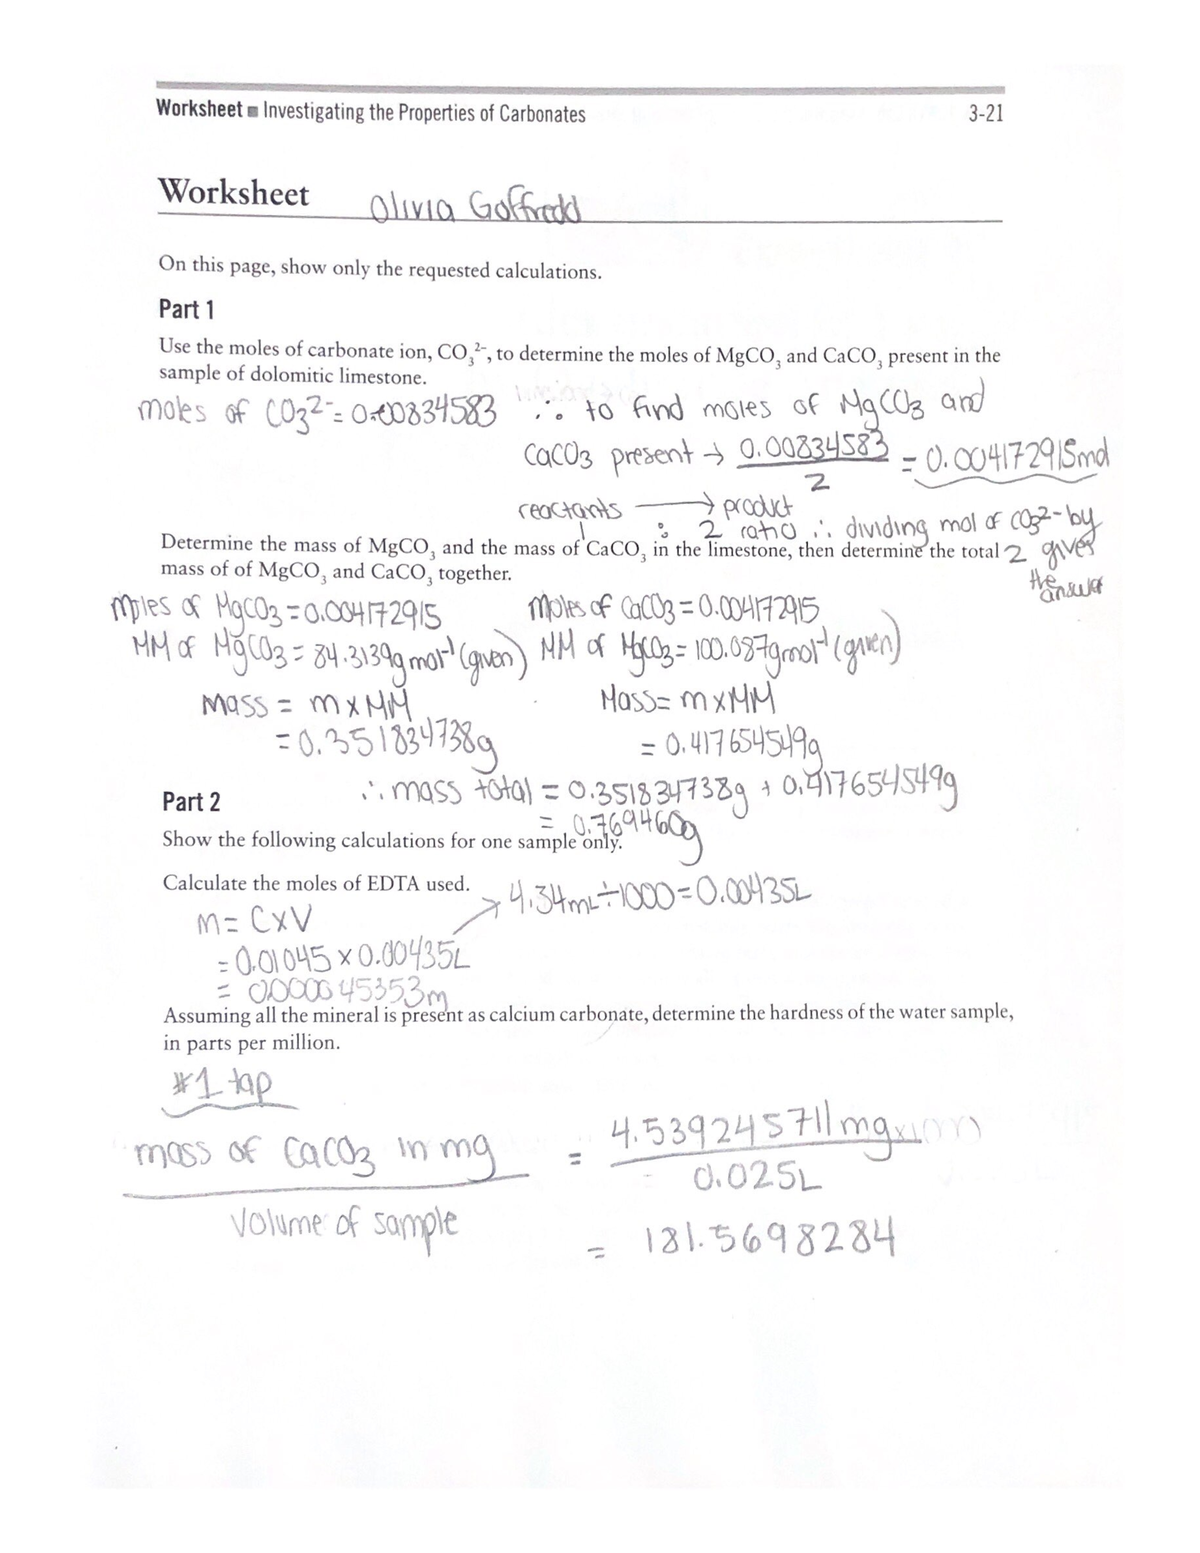 Worksheet ■ Investigating the Properties of Carbonates 3-21
Worksheet Olivia Goffredd
On this page, show only the requested calculations.
Part 1
Use the moles of carbonate ion, CO₃²⁻, to determine the moles of MgCO₃ and CaCO₃ present in the
sample of dolomitic limestone.
moles of CO₃²⁻ = 0.00834583 ∴ to find moles of MgCO₃ and
CaCO₃ present → 0.00834583 / 2 = 0.004172915mol
reactants → product
1 : 2 ratio ∴ dividing mol of CO₃²⁻ by
2 gives
the answer
Determine the mass of MgCO₃ and the mass of CaCO₃ in the limestone, then determine the total
mass of of MgCO₃ and CaCO₃ together.
moles of MgCO₃ = 0.004172915 moles of CaCO₃ = 0.004172915
MM of MgCO₃ = 84.3139gmol⁻¹ (given) MM of MgCO₃ = 100.087gmol⁻¹ (given)
mass = m x MM Mass = m x MM
= 0.351834738g = 0.417654549g
∴ mass total = 0.351834738g + 0.417654549g
= 0.7694460g
Part 2
Show the following calculations for one sample only.
Calculate the moles of EDTA used. → 4.34mL ÷ 1000 = 0.00435L
m = C x V
= 0.01045 x 0.00435L
= 0.000045353m
Assuming all the mineral is present as calcium carbonate, determine the hardness of the water sample,
in parts per million.
#1 tap
mass of CaCO₃ in mg = 4.539245711mg
volume of sample 0.025L
= 181.5698284